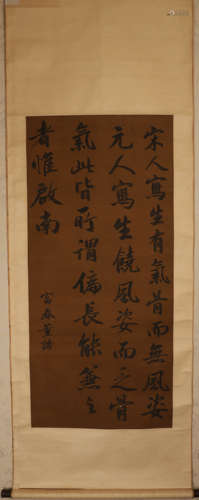 宋人寫生有氣骨而無風姿
元人寫生饒風姿而乏骨
氣此皆所謂偏長能兼之
者惟啟南
富春董誥